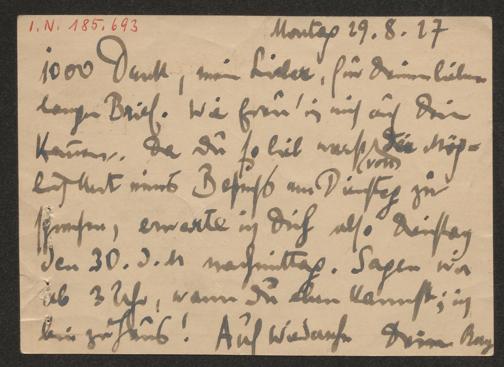 I.N. 185.693
Montag 29.8.27
1000 Dank, mein Lieber, für Deinen lieben
langen Brief. Wie freu' ich mich auf Dein
Kommen. Da Du so lieb warst, von der Mög-
lichkeit eines Besuchs am Dienstag zu
sprechen, erwarte ich Dich also Dienstag
den 30. d. M nachmittag. Sagen wir
ab 3 Uhr, wann Du eben kannst; ich
bin zu Haus! Auf Wiedersehn Dein